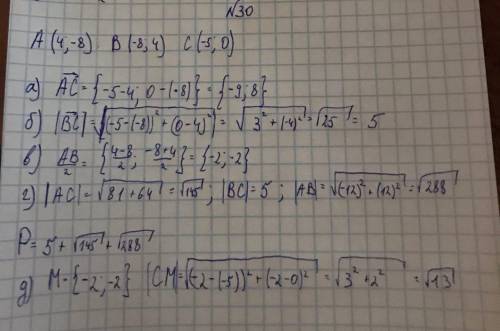 №30
A (4,-8) B (-8; 4) C (-5; 0)
а) AC = {-5-4; 0-(-8)} = {-9; 8}
б) |BC| = √((-5-(-8))² + (0-4)²) = √(3²+(-4)²) = √25 = 5
в) AB/2 = {(4-8)/2; (-8+4)/2} = {-2; -2}
г) |AC| = √(81+64) = √145; |BC| = 5; |AB| = √((-12)²+(12)²) = √288
P = 5 + √145 + √288
д) M - {-2; -2} |CM| = √(-2-(-5))² + (-2-0)² = √(3²+2²) = √13